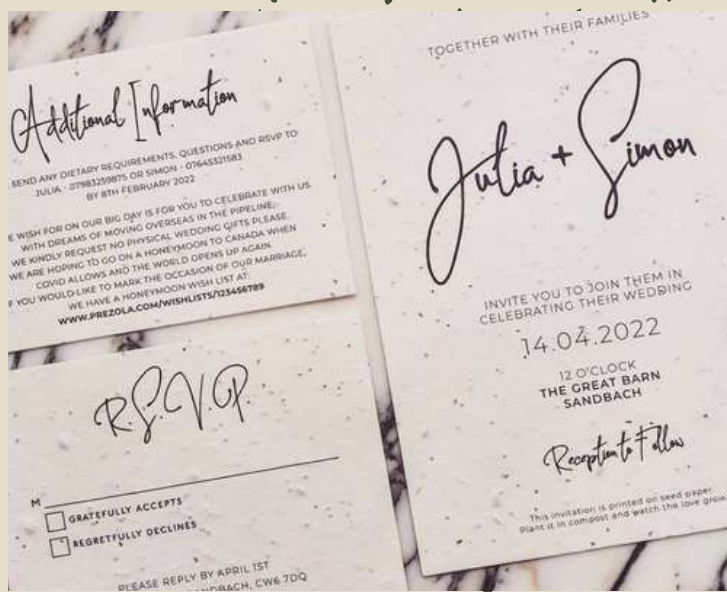 Additional Information
SEND ANY DIETARY REQUIREMENTS, QUESTIONS AND RSVP TO
JULIA - 07983259875 OR SIMON - 07645321583
BY 8TH FEBRUARY 2022
WISH FOR ON OUR BIG DAY IS FOR YOU TO CELEBRATE WITH US.
WITH DREAMS OF MOVING OVERSEAS IN THE PIPELINE,
WE KINDLY REQUEST NO PHYSICAL WEDDING GIFTS PLEASE.
WE ARE HOPING TO GO ON A HONEYMOON TO CANADA WHEN
COVID ALLOWS AND THE WORLD OPENS UP AGAIN.
F YOU WOULD LIKE TO MARK THE OCCASION OF OUR MARRIAGE,
WE HAVE A HONEYMOON WISH LIST AT:
WWW.PREZOLA.COM/WISHLISTS/123456789
R.S.V.P
M
GRATEFULLY ACCEPTS
REGRETFULLY DECLINES
PLEASE REPLY BY APRIL 1ST
SANDBACH, CW6 7DQ
TOGETHER WITH THEIR FAMILIES
Julia + Simon
INVITE YOU TO JOIN THEM IN
CELEBRATING THEIR WEDDING
14.04.2022
12 O'CLOCK
THE GREAT BARN
SANDBACH
Reception to Follow
This invitation is printed on seed paper.
Plant it in compost and watch the love grow